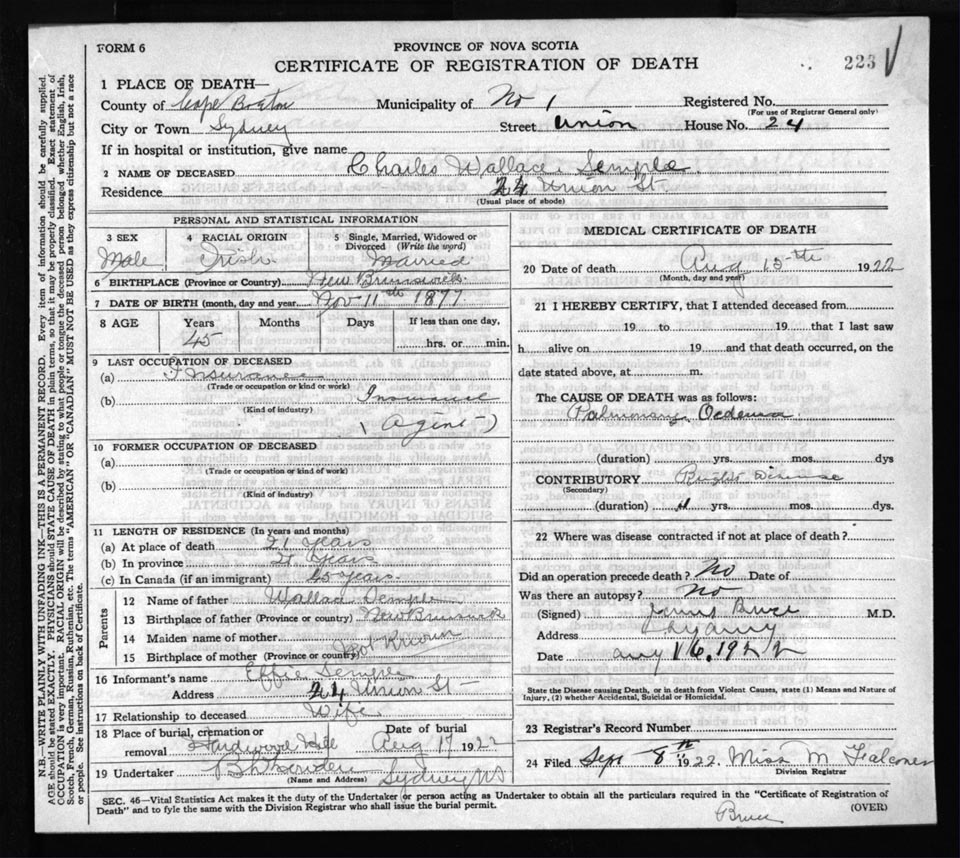 FORM 6
PROVINCE OF NOVA SCOTIA
CERTIFICATE OF REGISTRATION OF DEATH
223
1 PLACE OF DEATH—
County of Cape Breton Municipality of No 1 Registered No.
(For use of Registrar General only)
City or Town Sydney Street Union House No. 24
If in hospital or institution, give name
2 NAME OF DECEASED Charles Wallace Semple
Residence 24 Union St
(Usual place of abode)
PERSONAL AND STATISTICAL INFORMATION
3 SEX 4 RACIAL ORIGIN 5 Single, Married, Widowed or Divorced (Write the word)
Male Irish Married
6 BIRTHPLACE (Province or Country) New Brunswick
7 DATE OF BIRTH (month, day and year) Nov 11th 1877
8 AGE Years Months Days If less than one day,
45 hrs. or min.
9 LAST OCCUPATION OF DECEASED
(a) Insurance
(Trade or occupation or kind of work)
(b) Insurance
(Kind of industry)
(Agent)
10 FORMER OCCUPATION OF DECEASED
(a)
(Trade or occupation or kind of work)
(b)
(Kind of industry)
11 LENGTH OF RESIDENCE (In years and months)
(a) At place of death 21 years
(b) In province 21 years
(c) In Canada (if an immigrant) 45 years
Parents
12 Name of father Wallace Semple
13 Birthplace of father (Province or country) New Brunswick
14 Maiden name of mother
15 Birthplace of mother (Province or country) Not Known
16 Informant's name Effie Semple
Address 24 Union St
17 Relationship to deceased Wife
18 Place of burial, cremation or removal Hardwood Hill Date of burial Aug 17 1922
19 Undertaker Sydney NS
(Name and Address)
MEDICAL CERTIFICATE OF DEATH
20 Date of death Aug 15th 1922
(Month, day and year)
21 I HEREBY CERTIFY, that I attended deceased from
19 to 19 that I last saw
h alive on 19 and that death occurred, on the
date stated above, at m.
The CAUSE OF DEATH was as follows:
Pulmonary Oedema
(duration) yrs. mos. dys
CONTRIBUTORY Brights Disease
(Secondary)
(duration) yrs. mos. dys.
22 Where was disease contracted if not at place of death?
Did an operation precede death? No Date of
Was there an autopsy? No
(Signed) Bruce M.D.
Address Sydney
Date Aug 16, 1922
State the Disease causing Death, or in death from Violent Causes, state (1) Means and Nature of
Injury, (2) whether Accidental, Suicidal or Homicidal.
23 Registrar's Record Number
24 Filed Sept 8th 1922. Miss M Falconer
Division Registrar
SEC. 46—Vital Statistics Act makes it the duty of the Undertaker or person acting as Undertaker to obtain all the particulars required in the "Certificate of Registration of
Death" and to fyle the same with the Division Registrar who shall issue the burial permit.
(OVER)
Bruce
N.B.—WRITE PLAINLY WITH UNFADING INK—THIS IS A PERMANENT RECORD. Every item of information should be carefully supplied.
AGE should be stated EXACTLY. PHYSICIANS should STATE CAUSE OF DEATH in plain terms, so that it may be properly classified. Exact statement of
OCCUPATION is very important. RACIAL ORIGIN will be described by stating to what people or tongue the deceased person belonged whether English, Irish,
Scotch, French, German, Russian, Ruthenian, etc. The terms "AMERICAN" OR "CANADIAN" MUST NOT BE USED as they express citizenship but not a race
or people. See instructions on back of Certificate.